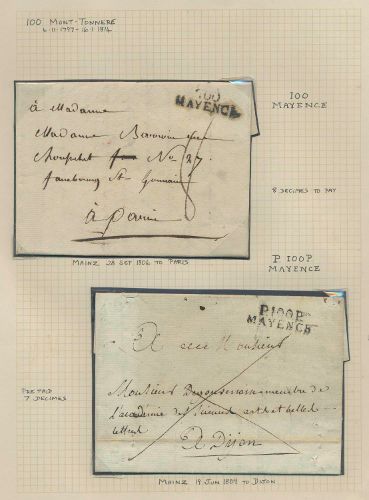 100 MONT-TONNERE
4.11.1797 - 16.1.1814
100
MAYENCE
100
MAYENCE
à Madame
Madame
No 27
faubourg St Germain
à Paris
8 DECIMES TO PAY
MAINZ 28 SEP 1806 TO PARIS
P 100P
MAYENCE
P.100.P.
MAYENCE
A Monsieur
Monsieur membre de
l'académie des sciences arts et belles
lettres
A Dijon
PREPAID
7 DECIMES
MAINZ 19 JUN 1804 TO DIJON